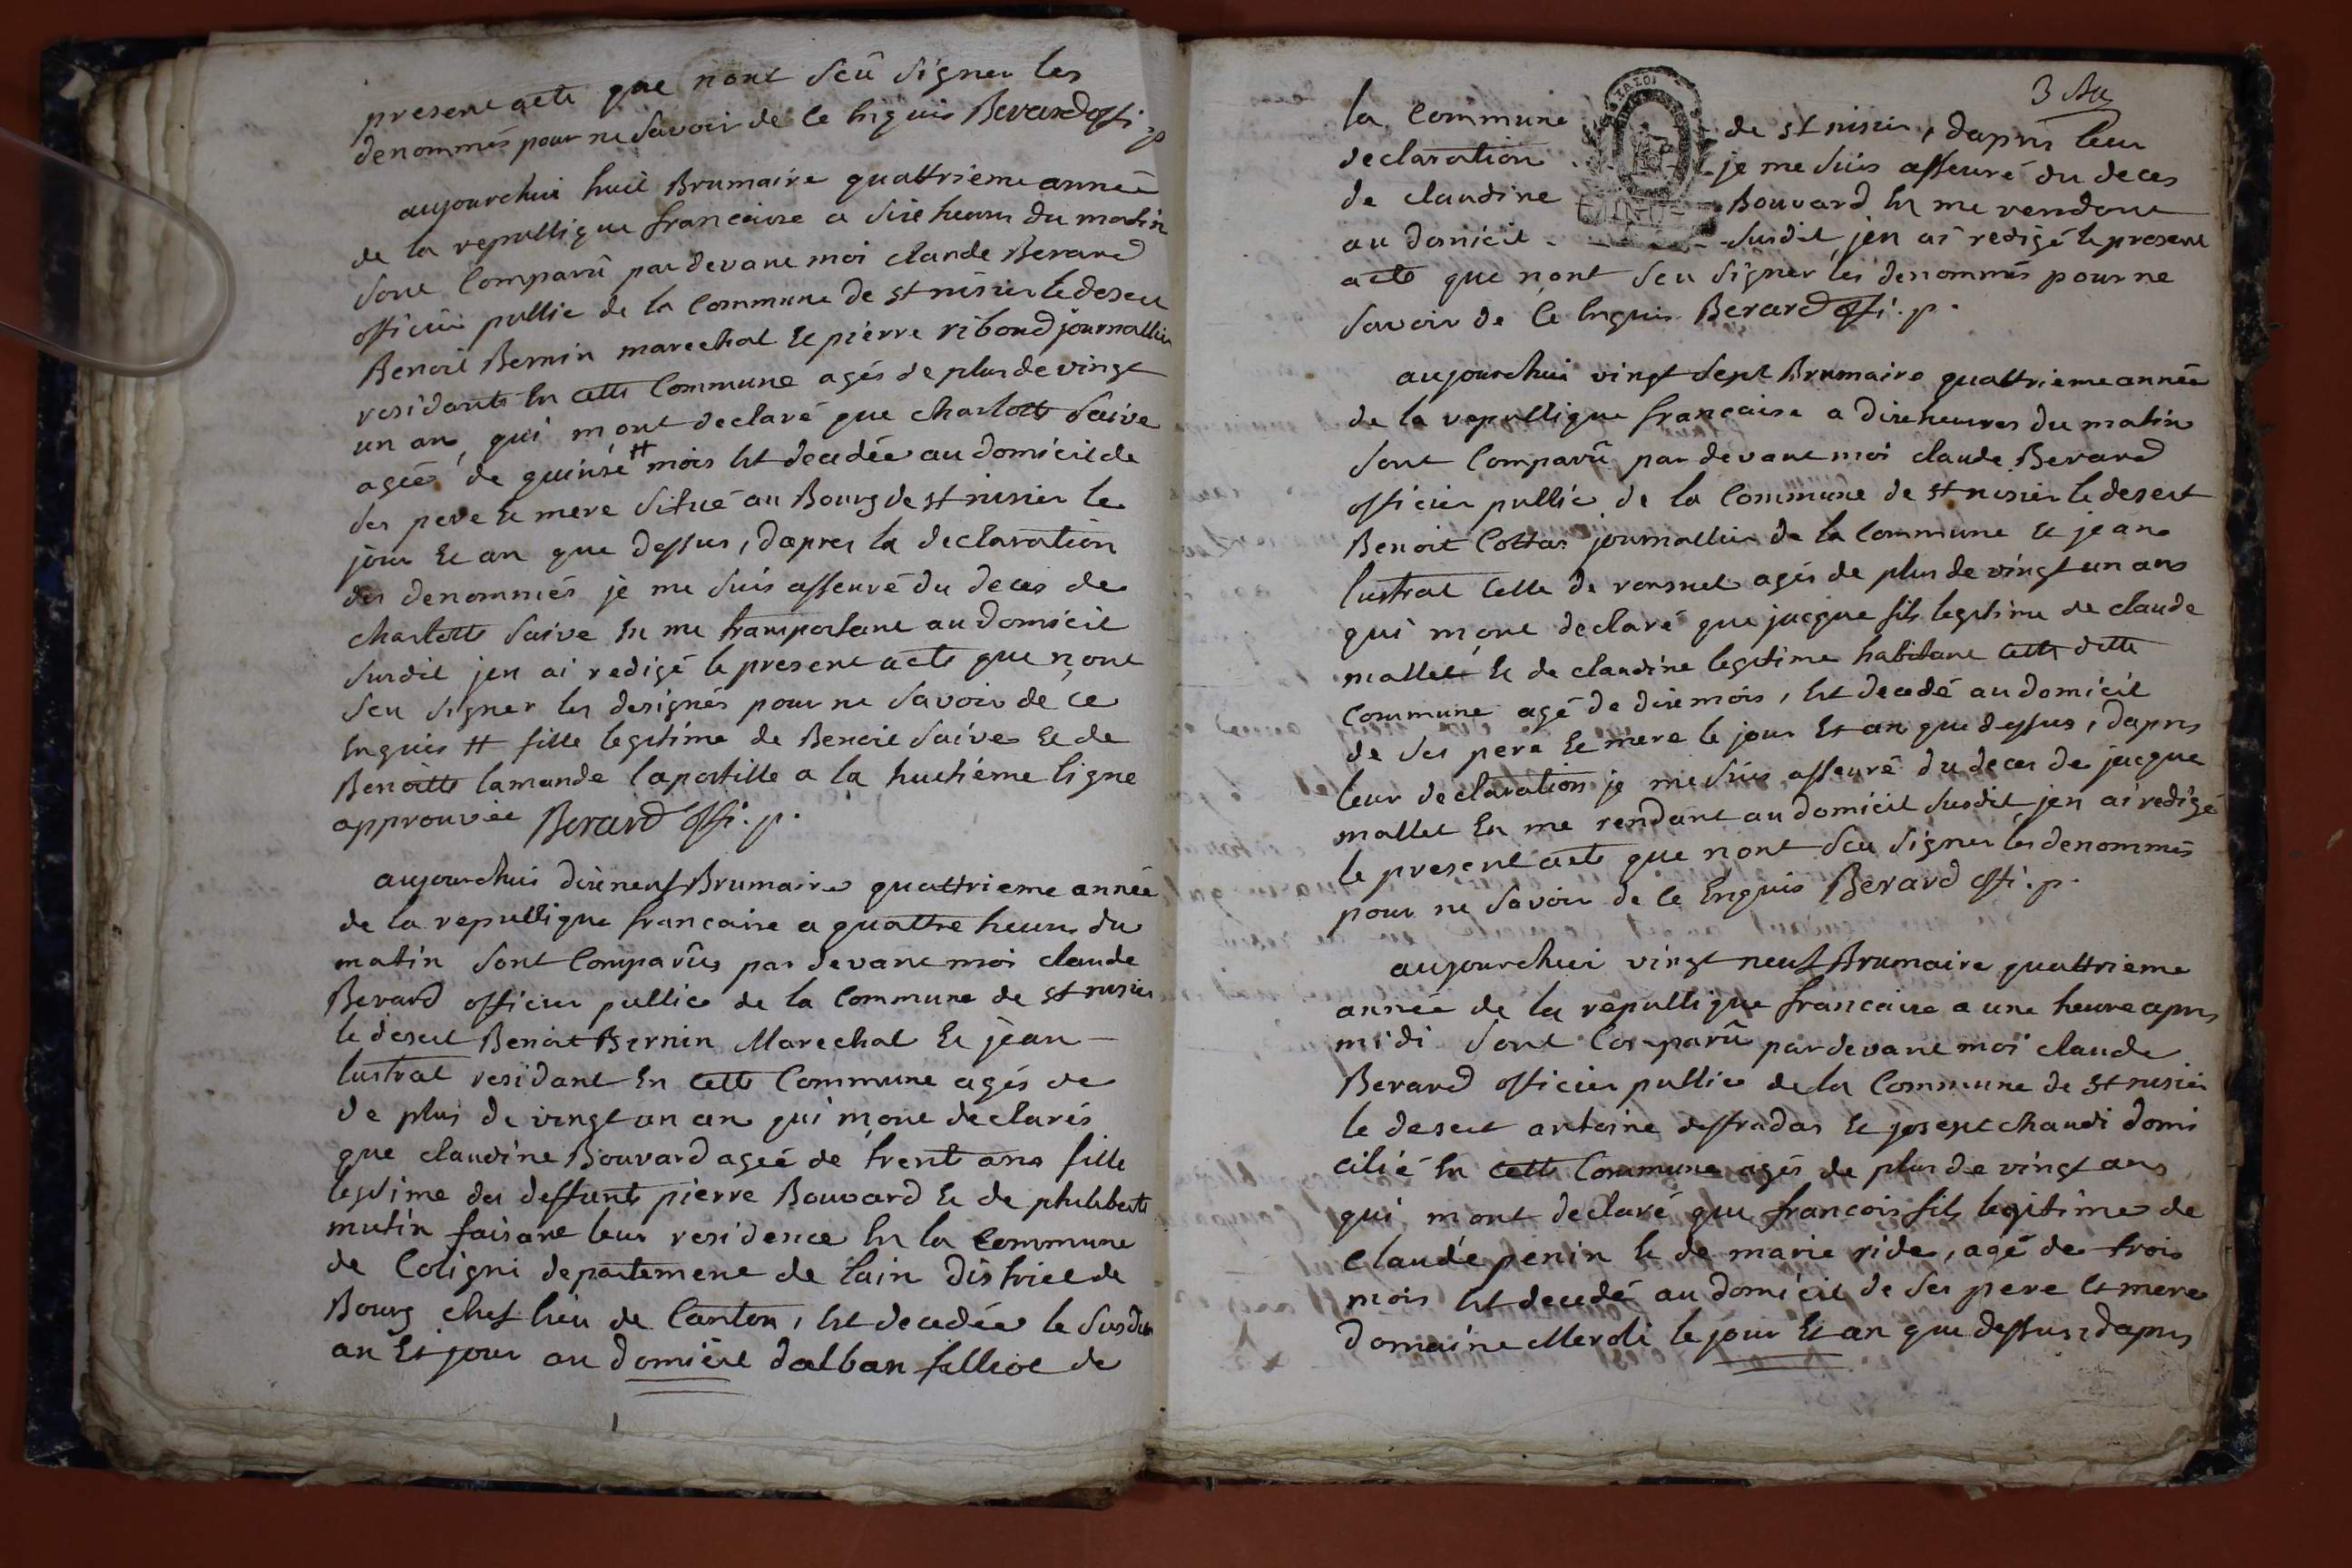 present acte que nont sçû signer les
denommés pour ne savoir de ce enquis Berard offi. p
aujourdhui huit Brumaire quattrieme année
de la republique francaise a dixe heures du matin
sont Comparû par devant moi claude Berard
officier public de la Commune de st nisier le desert
Benoit Bernin marechal et pierre riboud journallier
residants en cette Commune agés de plus de vingt
un an, qui mont declaré que charlotte Saive
ageé de quinsé # mois est decedée au domicil de
ses pere et mere situé au Bourg de st nisier le
jour et an que dessus, dapres la declaration
des denommés je me suis asseuré du deces de
charlotte Saive en me transportant au domicil
susdit jen ai redigé le present acte que nont
sçu signer les designés pour ne savoir de ce
enquis # fille legitime de Benoit Saive et de
Benoitte lamande lapostille a la huitiéme ligne
approuvée Berard offi. p.
aujourdhui dixneuf Brumaire quattrieme année
de la republique francaise a quattre heures du
matin sont Comparûs par devant moi claude
Berard officier public de la Commune de st nisier
le desert Benoit Bernin Marechal et jean
lustrat residant en cette Commune agés de
de plus de vingt un an qui mont declarés
que claudine Bouvard ageé de trent ans fille
legitime des deffunts pierre Bouvard et de philiberte
mutin faisant leur residence en la Commune
de Coligni departement de lain district de
Bourg chef lieu de Canton, est decedée le susdit
an et jour au domicil dalban filliot de
3 Bis
la Commune de st nisier, dapres leur
declaration je me suis asseuré du deces
de claudine Bouvard en me rendant
au domicil susdit jen ai redigé le present
acte que nont sçu signer les denommés pour ne
savoir de ce enquis Berard offi. p.
aujourdhui vingt sept Brumaire quattrieme année
de la republique francaise a dixe heures du matin
sont Comparû par devant moi claude Berard
officier public de la Commune de st nisier le desert
Benoit Cottas journallier de la Commune et jean
lustrat celle de ronsuel agés de plus de vingt un ans
qui mont declaré que jacque fils legitime de claude
mallet et de claudine legitime habitant cette ditte
Commune agé de dixe mois, est decedé au domicil
de ses pere et mere le jour et an que dessus, dapres
leur declaration je me suis asseuré du deces de jacque
mallet en me rendant au domicil susdit jen ai redigé
le present acte que nont sçu signer les denommés
pour ne savoir de ce enquis Berard offi. p.
aujourdhui vingt neuf Brumaire quattrieme
année de la republique francaise a une heure apres
midi sont Comparû par devant moi claude
Berard officier public de la Commune de st nisier
le desert antoine deffradas et josept chaudi domi
cilié en cette Commune agés de plus de vingt ans
qui mont declaré que francois fils legitime de
claude penin et de marie ride, agé de trois
mois est decedé au domicil de ses pere et mere
domaine Meroli le jour et an que dessus, dapres